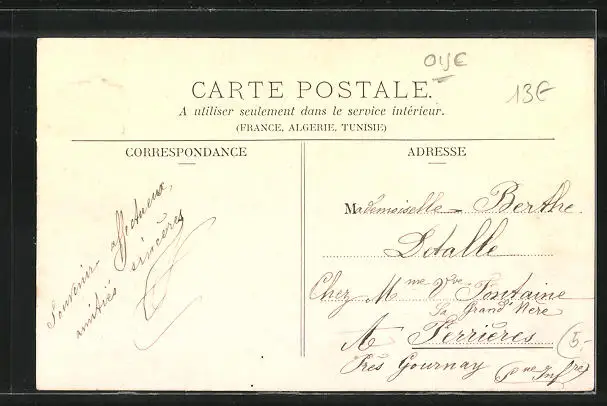 OISE
13€
CARTE POSTALE.
A utiliser seulement dans le service intérieur.
(FRANCE, ALGERIE, TUNISIE)
CORRESPONDANCE
Souvenir affectueux,
amitiés sincères
ADRESSE
Mademoiselle Berthe
Detalle
Chez Mme Vve Fontaine
Sa Grand' Mère
A Ferrières
Près Gournay (Sne Infre)
5-